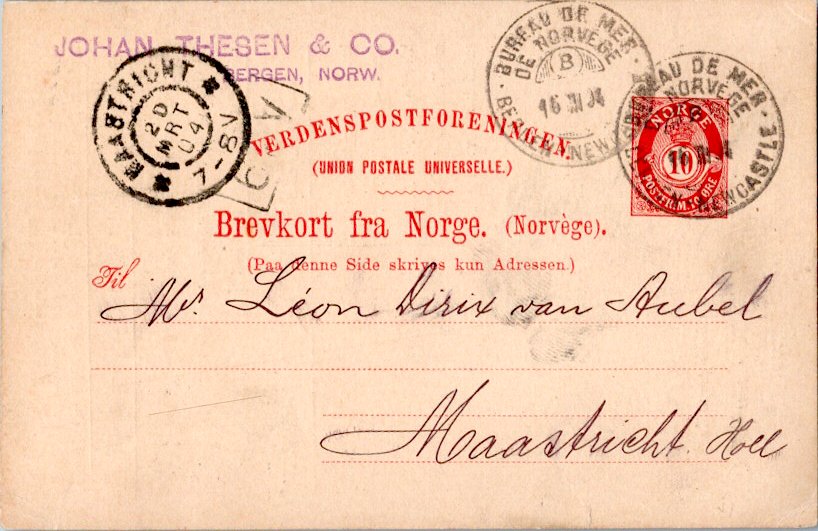 JOHAN THESEN & CO.
BERGEN, NORW.
MAASTRICHT
20
MRT
04
7-8V
BUREAU DE MER
DE NORVÈGE
B
16 III 04
BERGEN NEWCASTLE
BUREAU DE MER
NORVÈGE
NEWCASTLE
NORGE
10
POSTFRIM. 10 ØRE
VERDENSPOSTFORENINGEN.
(UNION POSTALE UNIVERSELLE.)
Brevkort fra Norge. (Norvège).
(Paa denne Side skrives kun Adressen.)
Til
Mr. Léon Dirix van Aubel
Maastricht. Holl